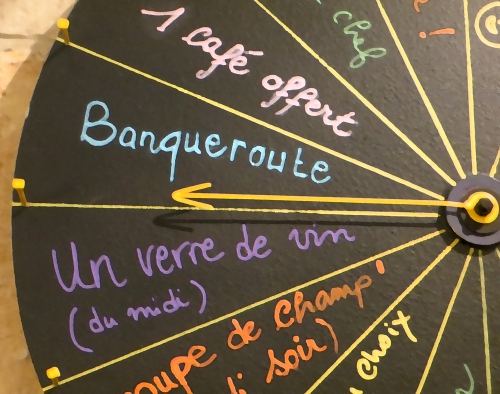 chef
!
1 café offert
Banqueroute
Un verre de vin
(du midi)
coupe de champ'
soir)
choix